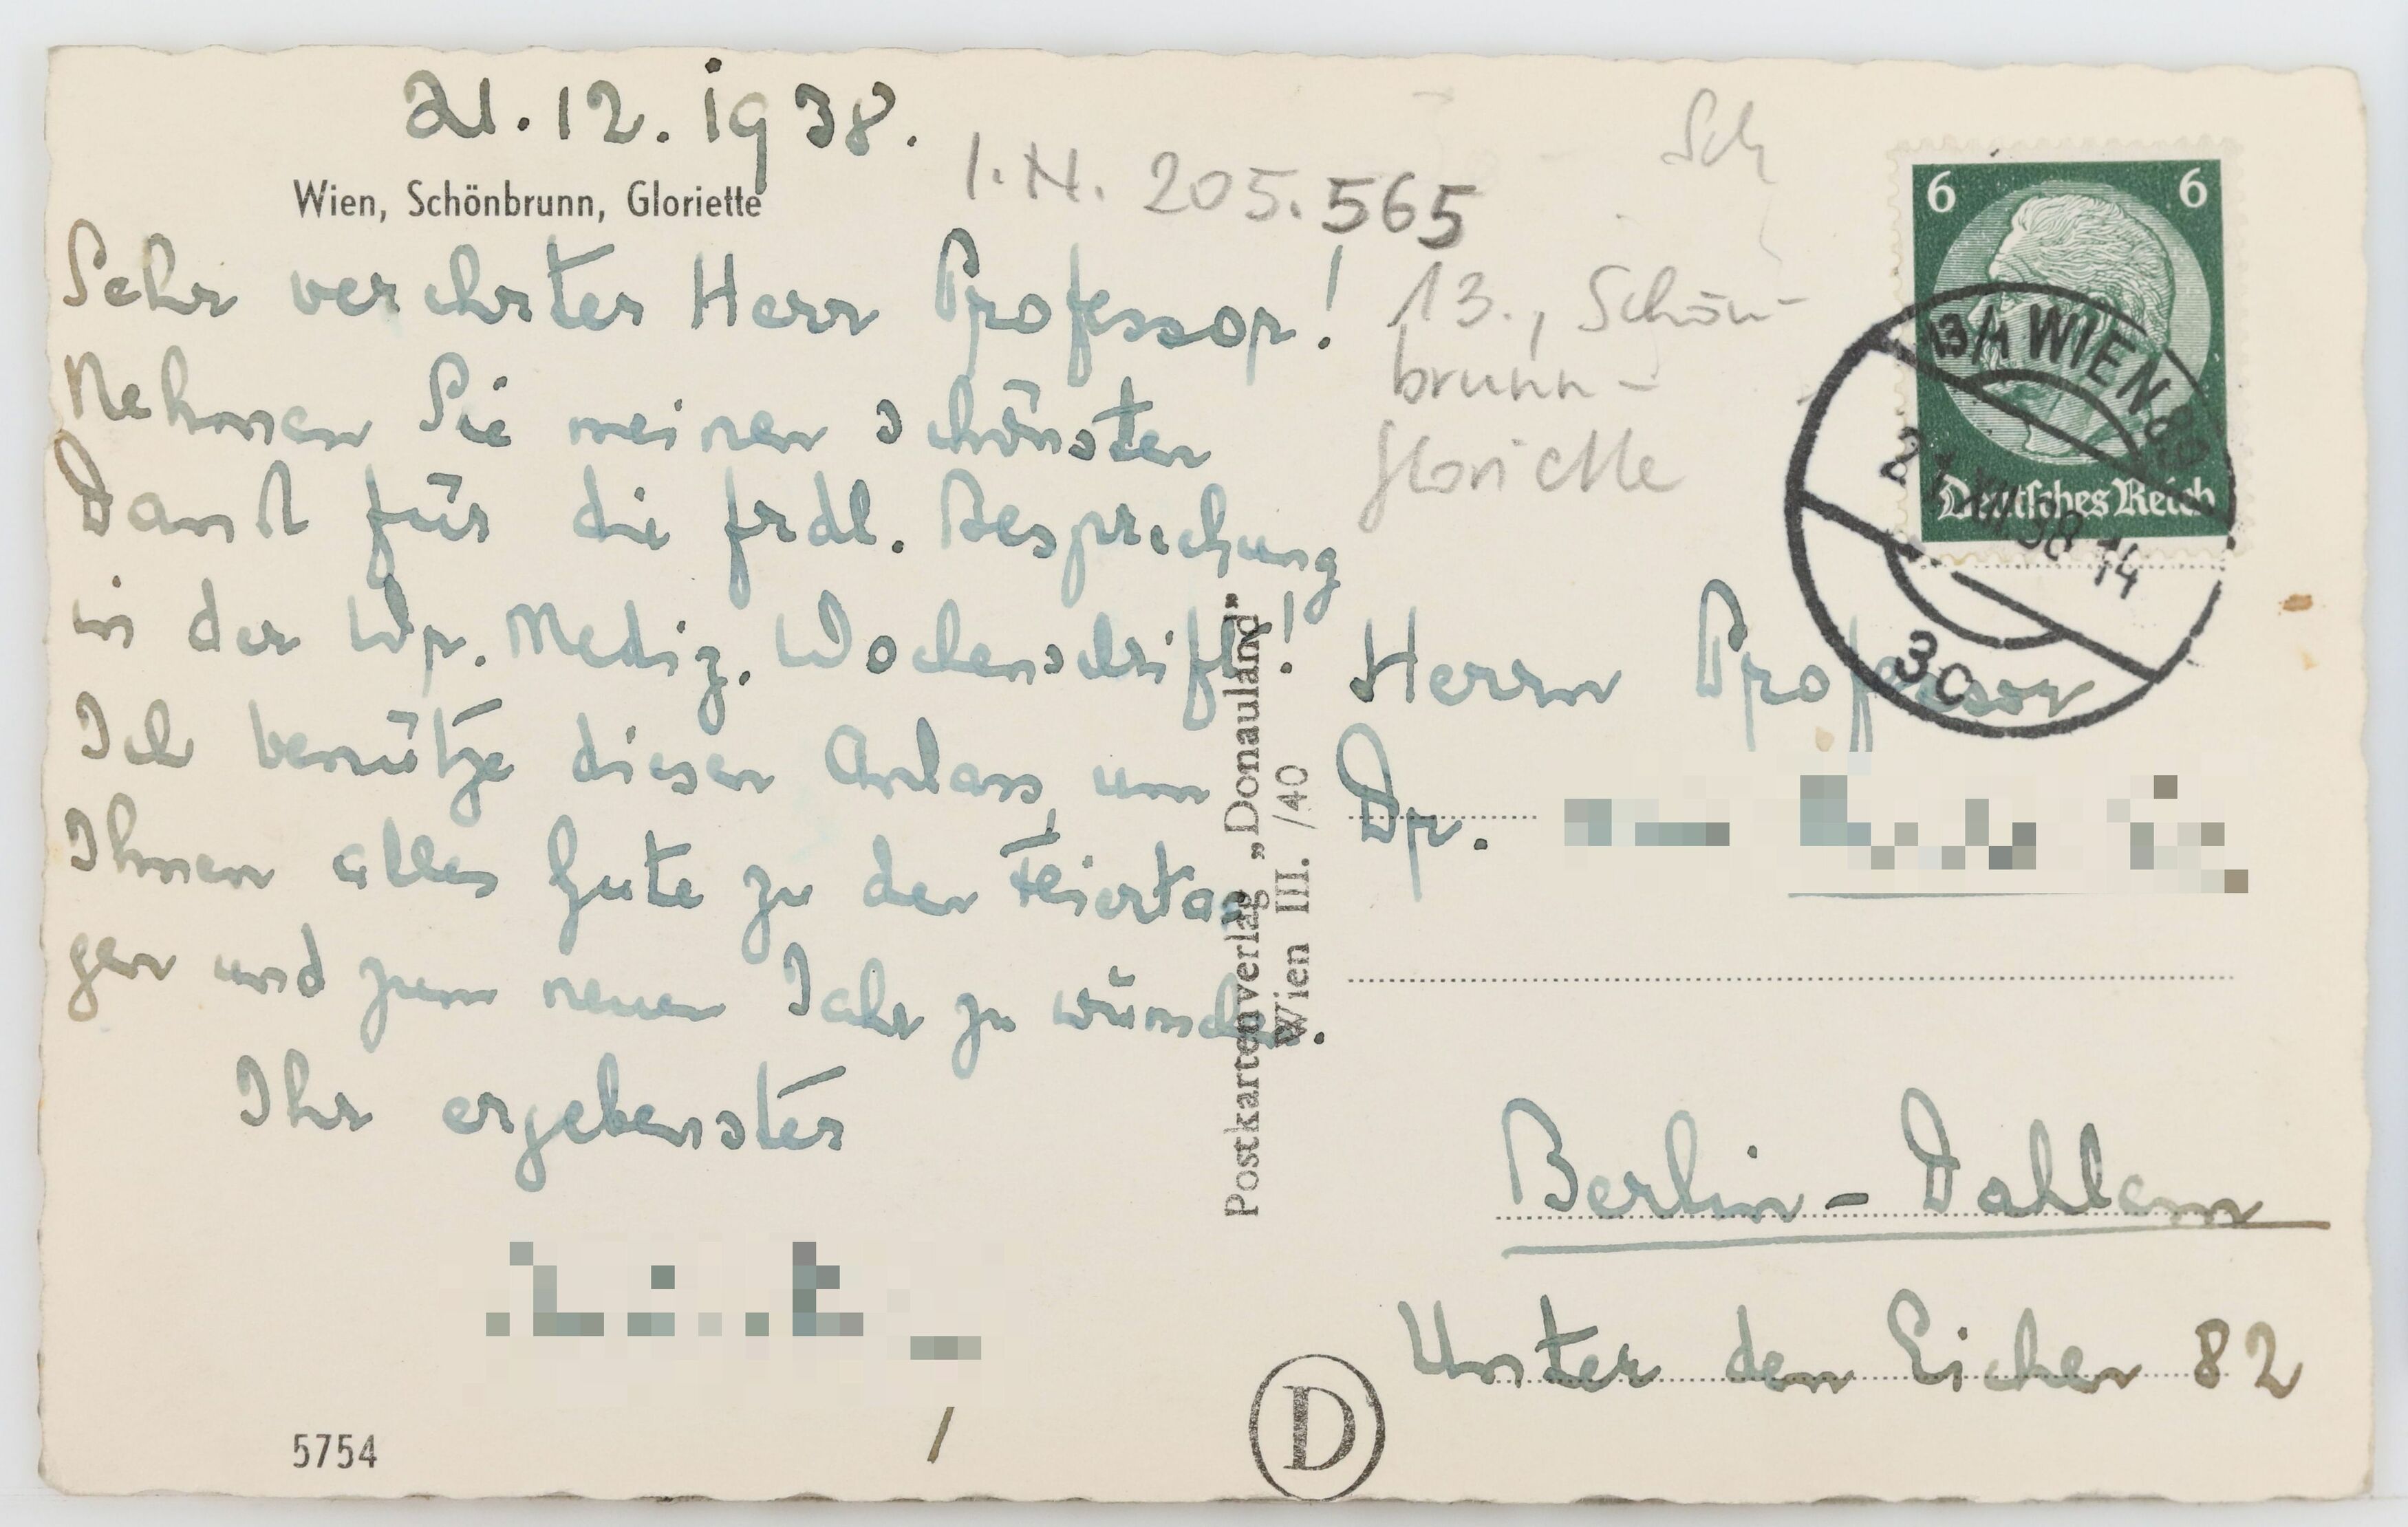 21.12.1938.
Wien, Schönbrunn, Gloriette
I.N. 205.565
Sehr verehrter Herr Professor!
Nehmen Sie meinen schönsten
Dank für die frdl. Besprechung
in der Wr. Mediz. Wochenschrift!
Ich benütze diesen Anlass, um
Ihnen alles Gute zu den Feierta
gen und zum neuen Jahr zu wünschen.
Ihr ergebenster
5754
Postkartenverlag „Donauland"
Wien III. /40
D
Sch
13., Schön-
brunn-
Gloriette
6 6
Deutsches Reich
13/1 WIEN 89
21.XII.38 14
3c
Herrn Professor
Dr.
Berlin-Dahlem
Unter den Eichen 82